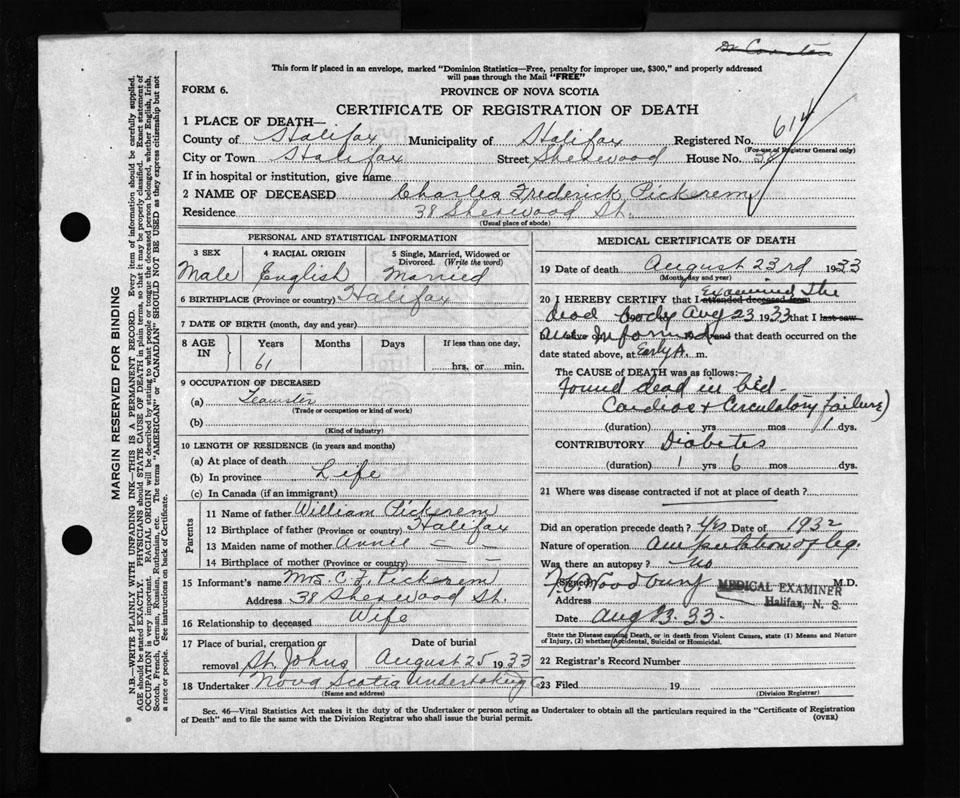 Dr Couston
This form if placed in an envelope, marked "Dominion Statistics—Free, penalty for improper use, $300," and properly addressed
will pass through the Mail "FREE"
FORM 6. PROVINCE OF NOVA SCOTIA
CERTIFICATE OF REGISTRATION OF DEATH
614
1 PLACE OF DEATH—
County of Halifax Municipality of Halifax Registered No.
(For use of Registrar General only)
City or Town Halifax Street Sherwood House No. 38
If in hospital or institution, give name
2 NAME OF DECEASED Charles Frederick Pickrem
Residence 38 Sherwood St.
(Usual place of abode)
PERSONAL AND STATISTICAL INFORMATION
3 SEX 4 RACIAL ORIGIN 5 Single, Married, Widowed or
Divorced. (Write the word)
Male English Married
6 BIRTHPLACE (Province or country) Halifax
7 DATE OF BIRTH (month, day and year)
8 AGE IN Years Months Days If less than one day,
61 hrs. or min.
9 OCCUPATION OF DECEASED
(a) Teamster
(Trade or occupation or kind of work)
(b)
(Kind of industry)
10 LENGTH OF RESIDENCE (in years and months)
(a) At place of death
(b) In province Life
(c) In Canada (if an immigrant)
Parents
11 Name of father William Pickrem
12 Birthplace of father (Province or country) Halifax
13 Maiden name of mother Annie — —
14 Birthplace of mother (Province or country) — —
15 Informant's name Mrs. C. F. Pickrem
Address 38 Sherwood St.
16 Relationship to deceased Wife
17 Place of burial, cremation or Date of burial
removal St. Johns August 25 1933
18 Undertaker Nova Scotia Undertaking Co
(Name and address)
MEDICAL CERTIFICATE OF DEATH
19 Date of death August 23rd 1933
(Month, day and year)
20 I HEREBY CERTIFY that I attended deceased from Examined the
dead body Aug 23 1933 that I last saw
am informed and that death occurred on the
date stated above, at Early A. m.
The CAUSE of DEATH was as follows:
found dead in bed—
Cardiac + Circulatory failure)
(duration) yrs mos 1 dys.
CONTRIBUTORY Diabetes
(duration) 1 yrs 6 mos dys.
21 Where was disease contracted if not at place of death?
Did an operation precede death? Yes Date of 1932
Nature of operation Amputation of leg.
Was there an autopsy? No
(Signed) Woodbury MEDICAL EXAMINER M.D.
Address Halifax, N. S.
Date Aug 23. 33.
State the Disease causing Death, or in death from Violent Causes, state (1) Means and Nature
of Injury, (2) whether Accidental, Suicidal or Homicidal.
22 Registrar's Record Number
23 Filed 19
(Division Registrar)
Sec. 46—Vital Statistics Act makes it the duty of the Undertaker or person acting as Undertaker to obtain all the particulars required in the "Certificate of Registration
of Death" and to file the same with the Division Registrar who shall issue the burial permit. (OVER)
MARGIN RESERVED FOR BINDING
N.B.—WRITE PLAINLY WITH UNFADING INK—THIS IS A PERMANENT RECORD. Every item of information should be carefully supplied.
AGE should be stated EXACTLY. PHYSICIANS should STATE CAUSE OF DEATH in plain terms, so that it may be properly classified. Exact statement of
OCCUPATION is very important. RACIAL ORIGIN will be described by stating to what people or tongue the deceased person belonged, whether English, Irish,
Scotch, French, German, Russian, Ruthenian, etc. The terms "AMERICAN" or "CANADIAN" SHOULD NOT BE USED as they express citizenship but not
a race or people. See instructions on back of Certificate.